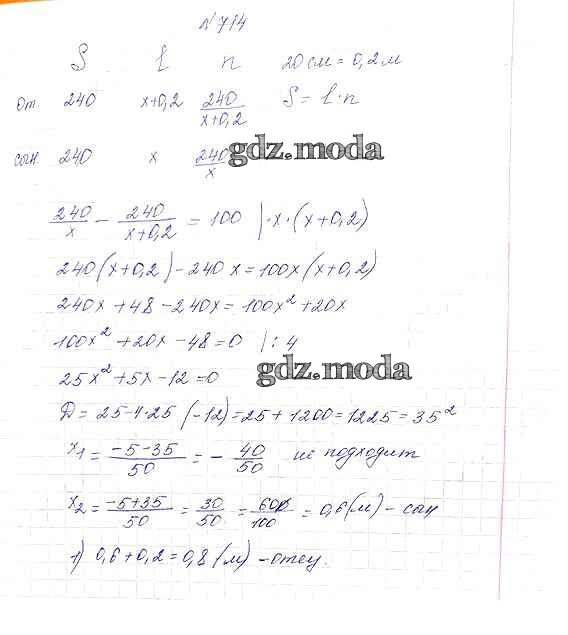 №714
S l n 20 см = 0,2 м
от. 240 x+0,2 240/(x+0,2) S = l·n
сын. 240 x 240/x gdz.moda
240/x − 240/(x+0,2) = 100 |·x·(x+0,2)
240(x+0,2) − 240x = 100x(x+0,2)
240x + 48 − 240x = 100x² + 20x
100x² + 20x − 48 = 0 |:4
25x² + 5x − 12 = 0 gdz.moda
D = 25−4·25(−12) = 25 + 1200 = 1225 = 35²
x₁ = (−5−35)/50 = − 40/50 не подходит
x₂ = (−5+35)/50 = 30/50 = 60/100 = 0,6 (м) − сын
1) 0,6 + 0,2 = 0,8 (м) − отец.